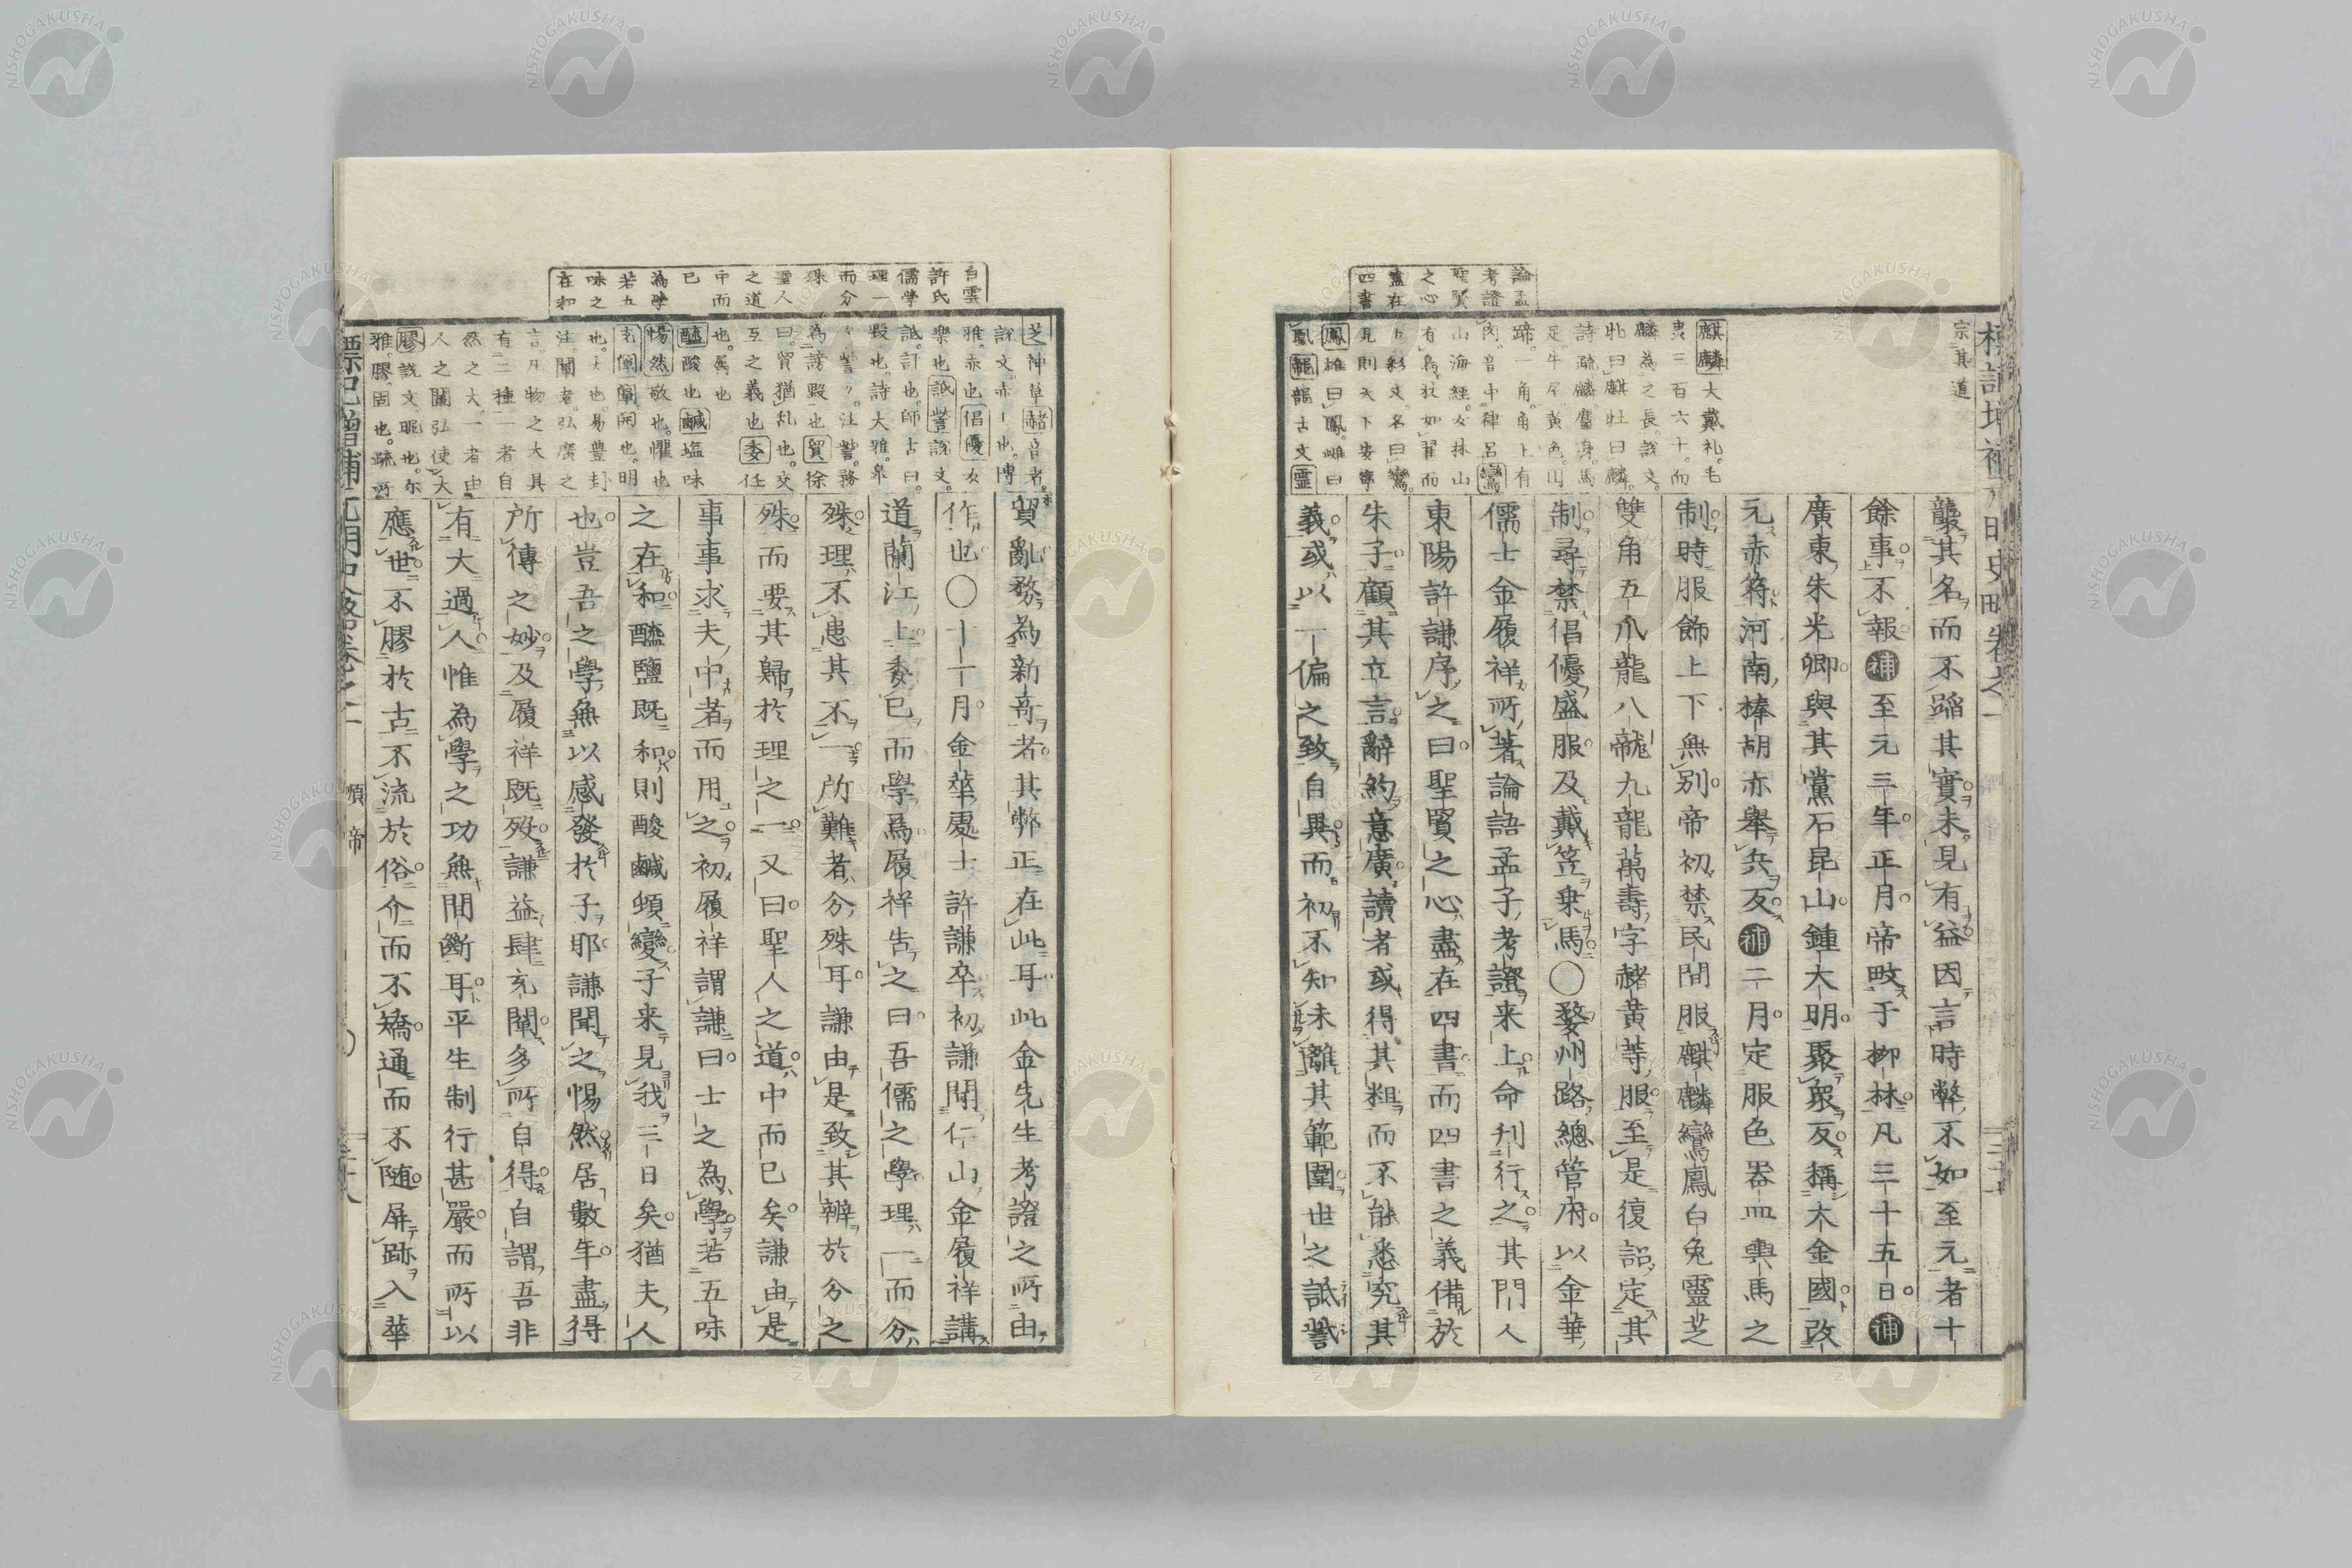 論孟
考證
聖賢
之心
盡在
四書
宗其道
麒麟大戴礼毛
虫三百六十而
麟為之長説文
牝曰麒牡曰麟
詩疏麟麕身馬
足牛尾黄色円
蹄一角角上有
肉音中律呂鸞
山海經女牀山
有鳥状如翟而
五彩文名曰鸞
見則天下安寧
鳳雄曰鳳雌曰
凰龍龍古文靈
襲其名而不蹈其實未見有益因言時弊不如至元者十
餘事不報補至元三年正月帝畋于柳林凡三十五日補
廣東朱光卿與其黨石昆山鍾大明聚衆反稱大金國改
元赤符河南棒胡亦舉兵反補二月定服色器皿輿馬之
制時服飾上下無別帝初禁民間服麒麟鸞鳳白兔靈芝
雙角五爪龍八龍九龍萬壽字赭黄等服至是復詔定其
制尋禁倡優盛服及戴笠乗馬〇婺州路總管府以金華
儒士金履祥所著論語孟子考證来上命刊行之其門人
東陽許謙序之曰聖賢之心盡在四書而四書之義備於
朱子顧其立言辭約意廣讀者或得其粗而不能悉究其
義或以一偏之致自異而初不知未離其範圍世之詆訾
白雲
許氏
儒学
理一
而分
殊
聖人
之道
中而
已
為学
若五
味之
在和
芝神草赭音者
説文赤〻也博
雅赤也倡優女
樂也詆訾説文
詆訶也師古曰
毀也詩大雅皋
〻訾〻注訾務
為謗毀也貿徐
曰貿猶乱也交
互之義也委任
也属也
醯酸也鹹塩味
惕然敬也懼也
充闡闡開也明
也大也易豊封
注闡者弘廣之
言凡物之大具
有二種一者自
然之大一者由
人之闡弘使大
膠説文昵也尓
雅膠固也疏所
貿亂務為新奇者其弊正在此耳此金先生考證之所由
作也〇十一月金華處士許謙卒初謙聞仁山金履祥講
道蘭江上委已而學焉履祥告之曰吾儒之學理一而分
殊理不患其不一所難者分殊耳謙由是致其辨於分之
殊而要其歸於理之一又曰聖人之道中而已矣謙由是
事事求夫中者而用之初履祥謂謙曰士之為學若五味
之在和醯鹽既和則酸鹹頓變子来見我三日矣猶夫人
也豈吾之學無以感發於子耶謙聞之惕然居數年盡得
所傳之妙及履祥既歿謙益肆充闡多所自得自謂吾非
有大過人惟為學之功無間斷耳平生制行甚嚴而所以
應世不膠於古不流於俗介而不矯通而不随屏跡入華
標記增補元明史略卷之一　順帝